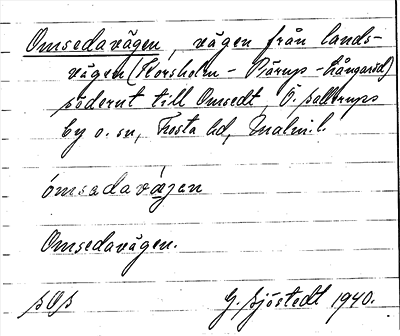 Omsedavägen, vägen från lands-
vägen (Korsholm - Bärup - Långaröd)
söderut till Omsedt, Ö. Sallerups
by o. sn, Frosta hd, Malm. l.
ómsadavä̀gen
Omsedavägen.
sOs G. Sjöstedt 1940.